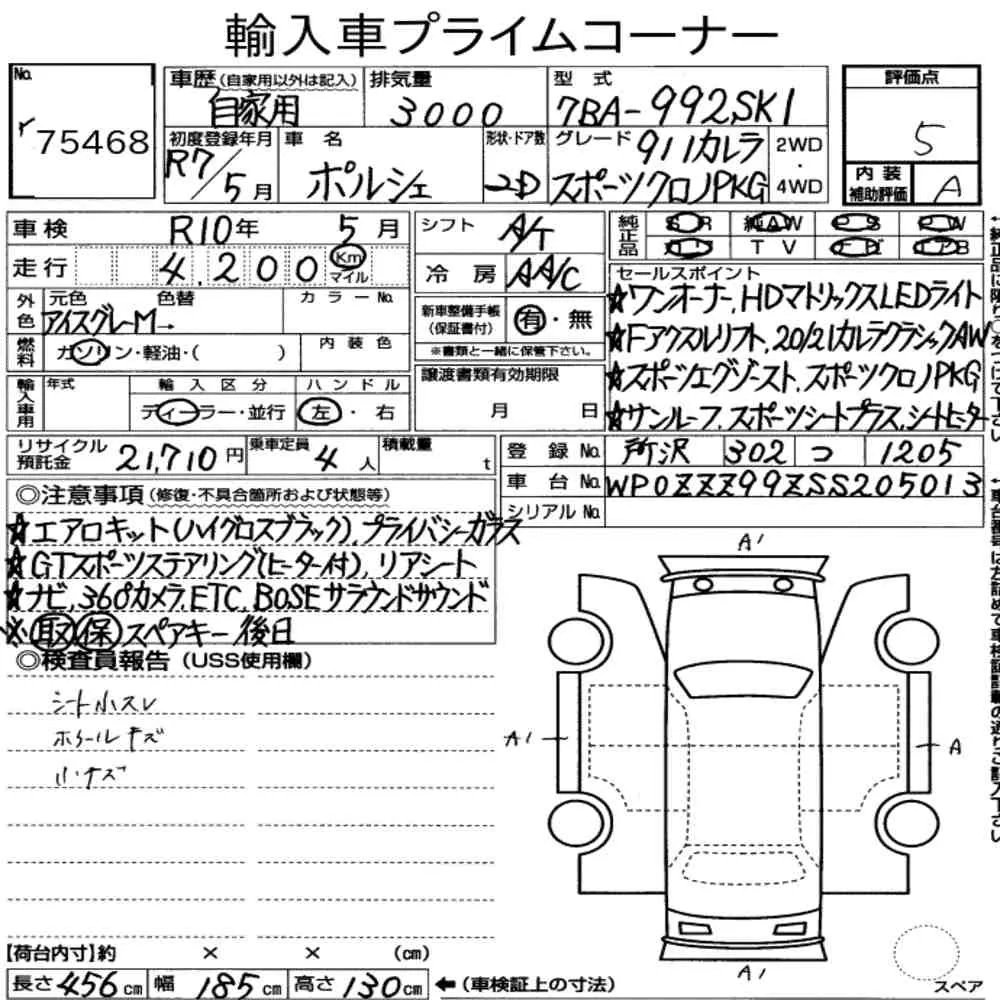 輸入車プライムコーナー
No. 75468
車歴(自家用以外は記入) 自家用
排気量 3000
型式 7BA-992SK1
評価点 5
内装補助評価 A
初度登録年月 R7/5月
車名 ポルシェ
形状・ドア数 2D
グレード 911カレラ スポーツクロノPKG
2WD・4WD
車検 R10年 5月
シフト A/T
純正品 SR 純AW PS PW
カワ TV ナビ エアB
走行 4,200 Km マイル
冷房 AA/C
セールスポイント
☆ワンオーナー、HDマトリックスLEDライト
☆Fアクスルリフト、20/21カレラクラシックAW
☆スポーツエグゾースト、スポーツクロノPKG
☆サンルーフ、スポーツシートプラス、シートヒーター
外色 元色 色替 カラーNo.
アイスグレーM→
新車整備手帳(保証書付) 有・無
※書類と一緒に保管下さい。
燃料 ガソリン・軽油・( )
内装色
譲渡書類有効期限 月 日
輸入車用 年式 輸入区分 ディーラー・並行
ハンドル 左・右
リサイクル預託金 21,710円
乗車定員 4人
積載量 t
登録No. 所沢 302 つ 1205
車台No. WP0ZZZ99ZSS205013
シリアルNo.
◎注意事項(修復・不具合箇所および状態等)
☆エアロキット(ハイグロスブラック)、プライバシーガラス
☆GTスポーツステアリング(ヒーター付)、リアシート
☆ナビ、360°カメラ、ETC、BOSEサラウンドサウンド
※取保スペアキー後日
◎検査員報告(USS使用欄)
シート小スレ
ホイールキズ
小キズ
A1
A1
A
A1
スペア
【荷台内寸】約 × × (cm)
長さ456cm 幅185cm 高さ130cm ←(車検証上の寸法)